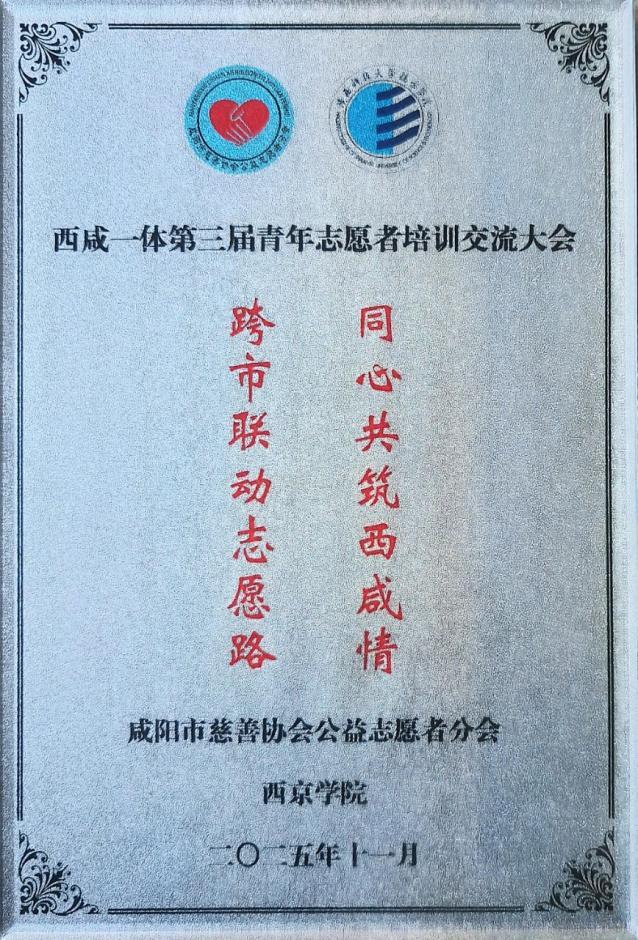 西咸一体第三届青年志愿者培训交流大会
同心共筑西咸情
跨市联动志愿路
咸阳市慈善协会公益志愿者分会
西京学院
二〇二五年十一月